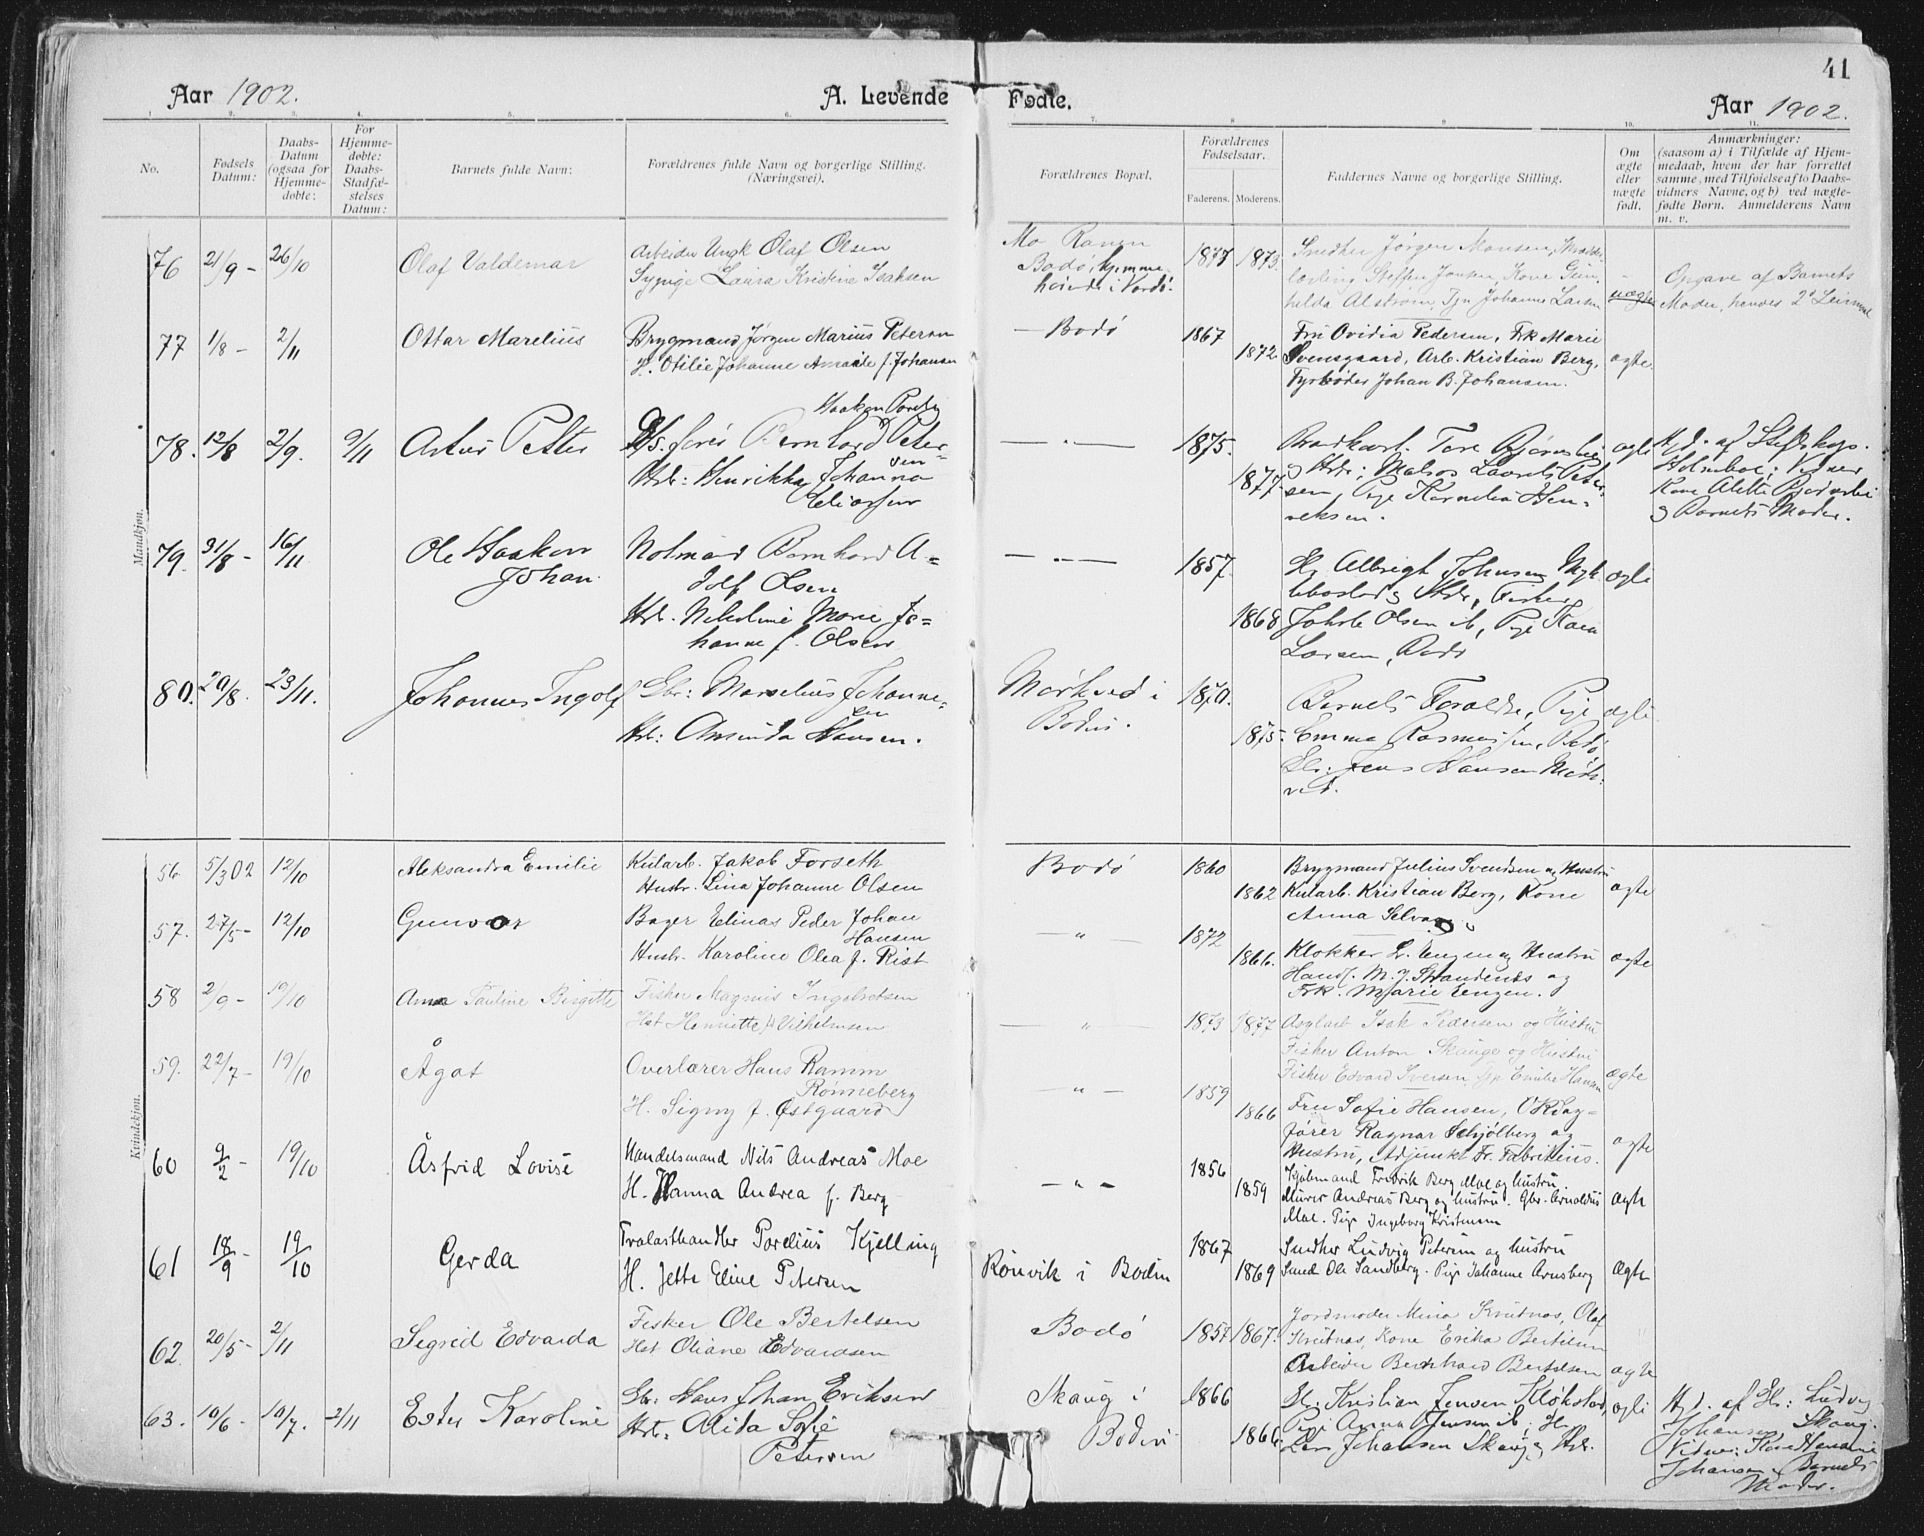 41
Aar 1902.
A. Levende Fødte.
Aar 1902.
1. 2. 3. 4. 5. 6. 7. 8 9 10. 11.
No.
Fødsels Datum:
Daabs-Datum (ogsaa for Hjemme-døbte:
For Hjemme-døbte: Daabs-Stadfæ-stelses Datum:
Barnets fulde Navn:
Forældrenes fulde Navn og borgerlige Stilling.
(Næringsvei).
Forældrenes Bopæl.
Forældrenes Fødselsaar.
Faderens. Moderens.
Faddernes Navne og borgerlige Stilling.
Om ægte eller uægte født.
Anmærkninger:
(saasom a) i Tilfælde af Hjem-
medaab, hvem der har forrettet
samme, med Tilføielse af to Daabs-
vidners Navne, og b) ved uægte-
fødte Børn. Anmelderens Navn
m. v.
Mandkjøn.
76 21/9 - 26/10 Olaf Valdemar
Arbeider Ungk Olaf Olsen
Sypige Laura Kristine Isaksen
Mo Ranen
Bodø, hjemme-
hørende i Vardø.
1877 1873.
Snedker Jørgen Monsen,
Steffen Jonsen, Kone
Alstrøm, Johanne Larsen
uægte
Opgave af Barnets
Moder, hendes 2d Leiermaal
77 1/8 - 2/11 Ottar Marelius
Brygmand Jørgen Marius Peterson
H. Otilie Johanne Amalie f. Johansen
— Bodø 1867
1872
Fru Ovidia Pedersen, Frk Marie
Svensgaard, Arb. Kristian Berg,
Fyrbøder Johan B. Johansen.
ægte.
78. 12/8 2/9. 9/11 Artur Petter
Bernhard Peter-
sen
Hst: Henrikke Johanna
Eliassen
— " — 1875.
1877.
Tore Bjørnslie
og Hstr:
sen, Pige Kornelia Hen-
reksen.
ægte
H. d. af
Holmboe; Vidner
Kone Alette
og Barnets Moder.
79. 31/8 - 16/11 Ole Haakon
Johan.
Notmand Bernhard A-
dolf Olsen
Hst. Nikoline Marie Jo-
hanne f. Olsen
— " — 1857.
1868
Albrigt Johnsen
Hstr, Fisker
Olsen ib, Pige
Larsen, Bodø
ægte
80. 20/8. 23/11. Johannes Ingolf
Gbr: Marselius Johanne-
sen
Hst: Amanda Hansen.
Mørkved i
Bodin.
1870.
1875.
Barnets Forældre, Pige
Emma Rasmussen, Bodø
Gbr: Jens Hansen Mørk-
ved.
ægte
Kvindekjøn.
56 5/3 02 12/10 Aleksandra Emilie
Kularb. Jakob Forseth
Hustr. Lina Johanne Olsen
Bodø 1860
1862
Brygmand Julius Svendsen og Hustru
Kularb. Kristian Berg, Kone
Anna
ægte
57. 27/5 - 12/10 Gunvor
Bager Elinas Peder Johan
Hansen
Hustr. Karoline Olea f. Rist
— " — 1872
1866.
Klokker L. Engen og Hustru
Handl. M. J. Strandenæs og
Frk. Marie Engen.
ægte
58 2/9 - 19/10 Anna Pauline Birgitte
Fisker Magnus Ingebretsen
Hst Henriette Vilhelmsen
— " — 1873 1877
Isak Pedersen og Hustru
Fisker Anton Skauge og Hustru
Fisker Edvard Iversen, Emilie Hansen
ægte
59. 22/7 - 19/10 Ågot
Overlærer Hans Ramm
Rønneberg
H. Signy f. Østgaard
— " — 1859
1866
Fru Sofie Hansen, ORSag-
fører Ragnar Schjølberg og
Hustru, Adjunkt Fr. Fabritius.
ægte
60 9/2 - 19/10 Åsfrid Lovise
Handelsmand Nils Andreas Moe
H. Hanna Andrea f. Berg
— " — 1856
1859
Kjøbmand Fredrik Berg Moe og hustru.
Murer Andreas Berg og hustru. Gbr. Arnoldus
Moe. Pige Ingeborg Kristensen
ægte
61 18/9 - 19/10 Gerda
Trælasthandler Parelius Kjelling
H. Jette Eline Petersen
Rønvik i Bodin
1867
1869
Snedker Ludvig Petersen og hustru
Smed Ole Sandberg. Pige Johanne Arnsberg
Ægte
62. 20/5 - 2/11 Sigrid Edvarda
Fisker Ole Bertelsen
Hst Oliane Edvardsen
Bodø 1857 1867.
Jordmoder Mina Knutnas, Olaf
Knutnas, Kone Erika Bertelsen
Arbeider Bernhard Bertelsen
ægte
63. 10/6 - 10/7. 2/11 Ester Karoline
Gbr: Hans Johan Eriksen
Hst: Alida Sofie
Petersen
Skaug i
Bodin
1866
1866.
Kristian Jensen Kløkstad,
Pige Anna Jensen ib,
Lars Johansen Skaug og Hstr.
ægte
Hjd. af Ludvig
Johansen Skaug.
Vidner: Kone Hansine
Johansen og Barnets
Moder.